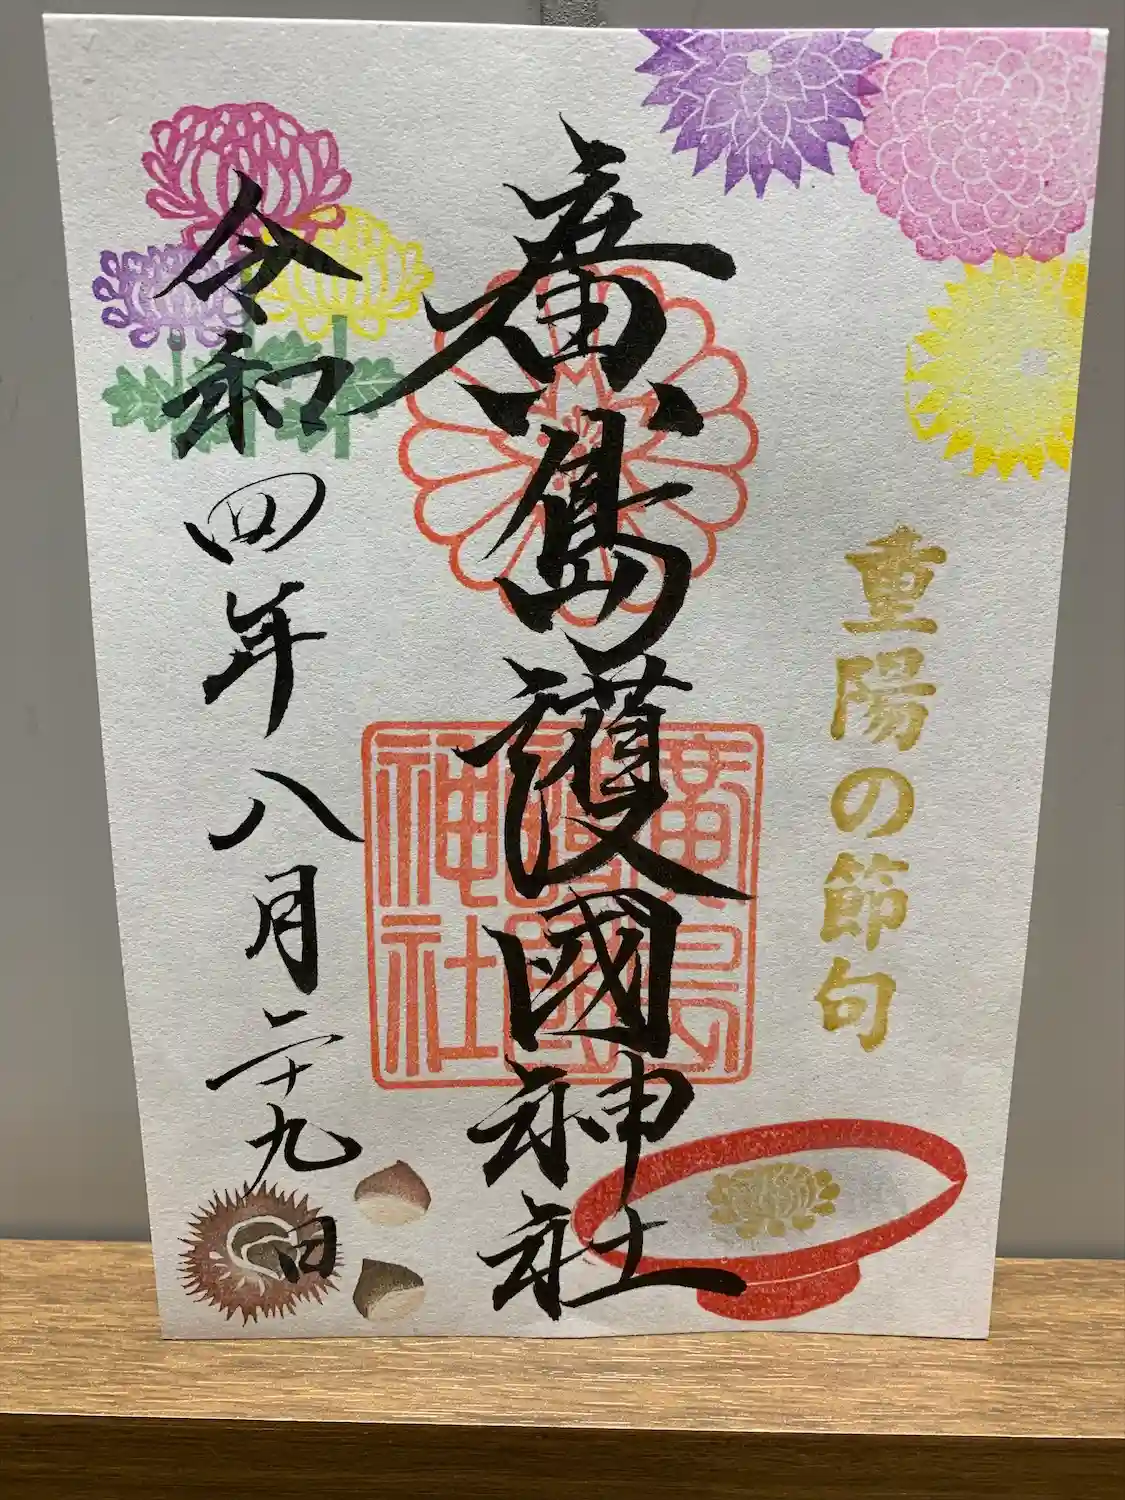 重陽の節句
廣島護國神社
廣島護國神社
令和四年八月二十九日